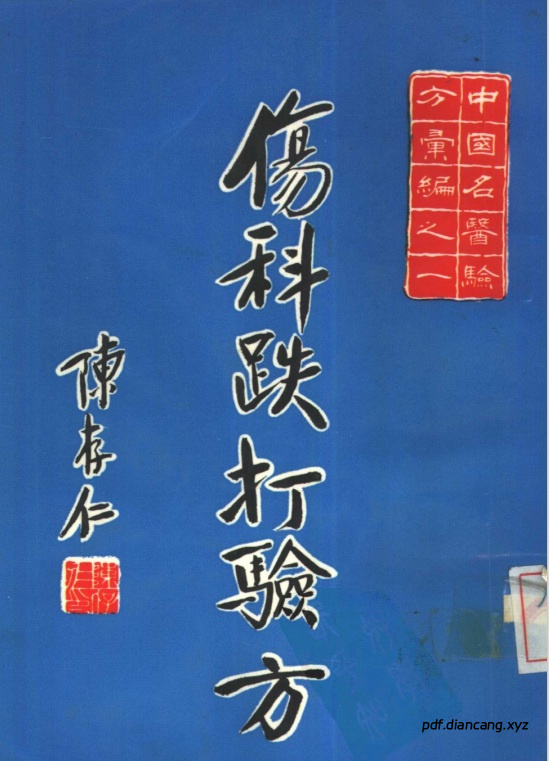 中國名醫驗
方彙編之一
傷科跌打驗方
陳存仁
pdf.diancang.xyz